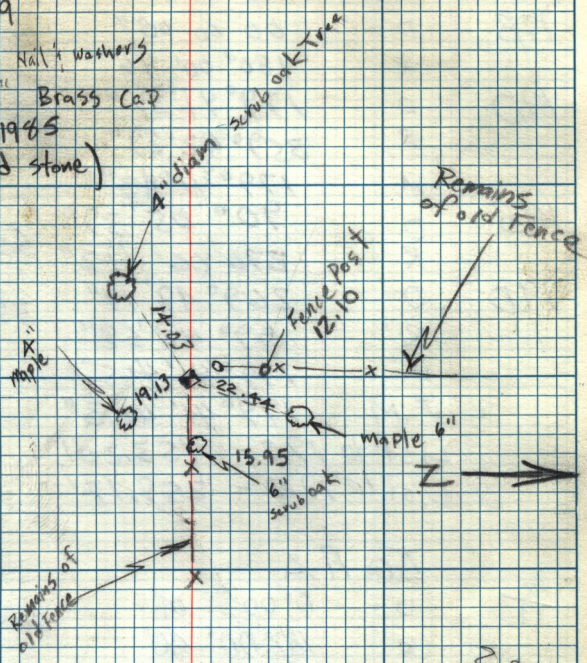 9
Nail & washers
Brass Cap
1985
d stone)
4" diam scrub oak Tree
Remains
of old Fence
Fence Post
12.10
14.03
4"
maple
19.13
22.44
maple 6"
15.95
6"
scrub oak
N
Remains of
old Fence